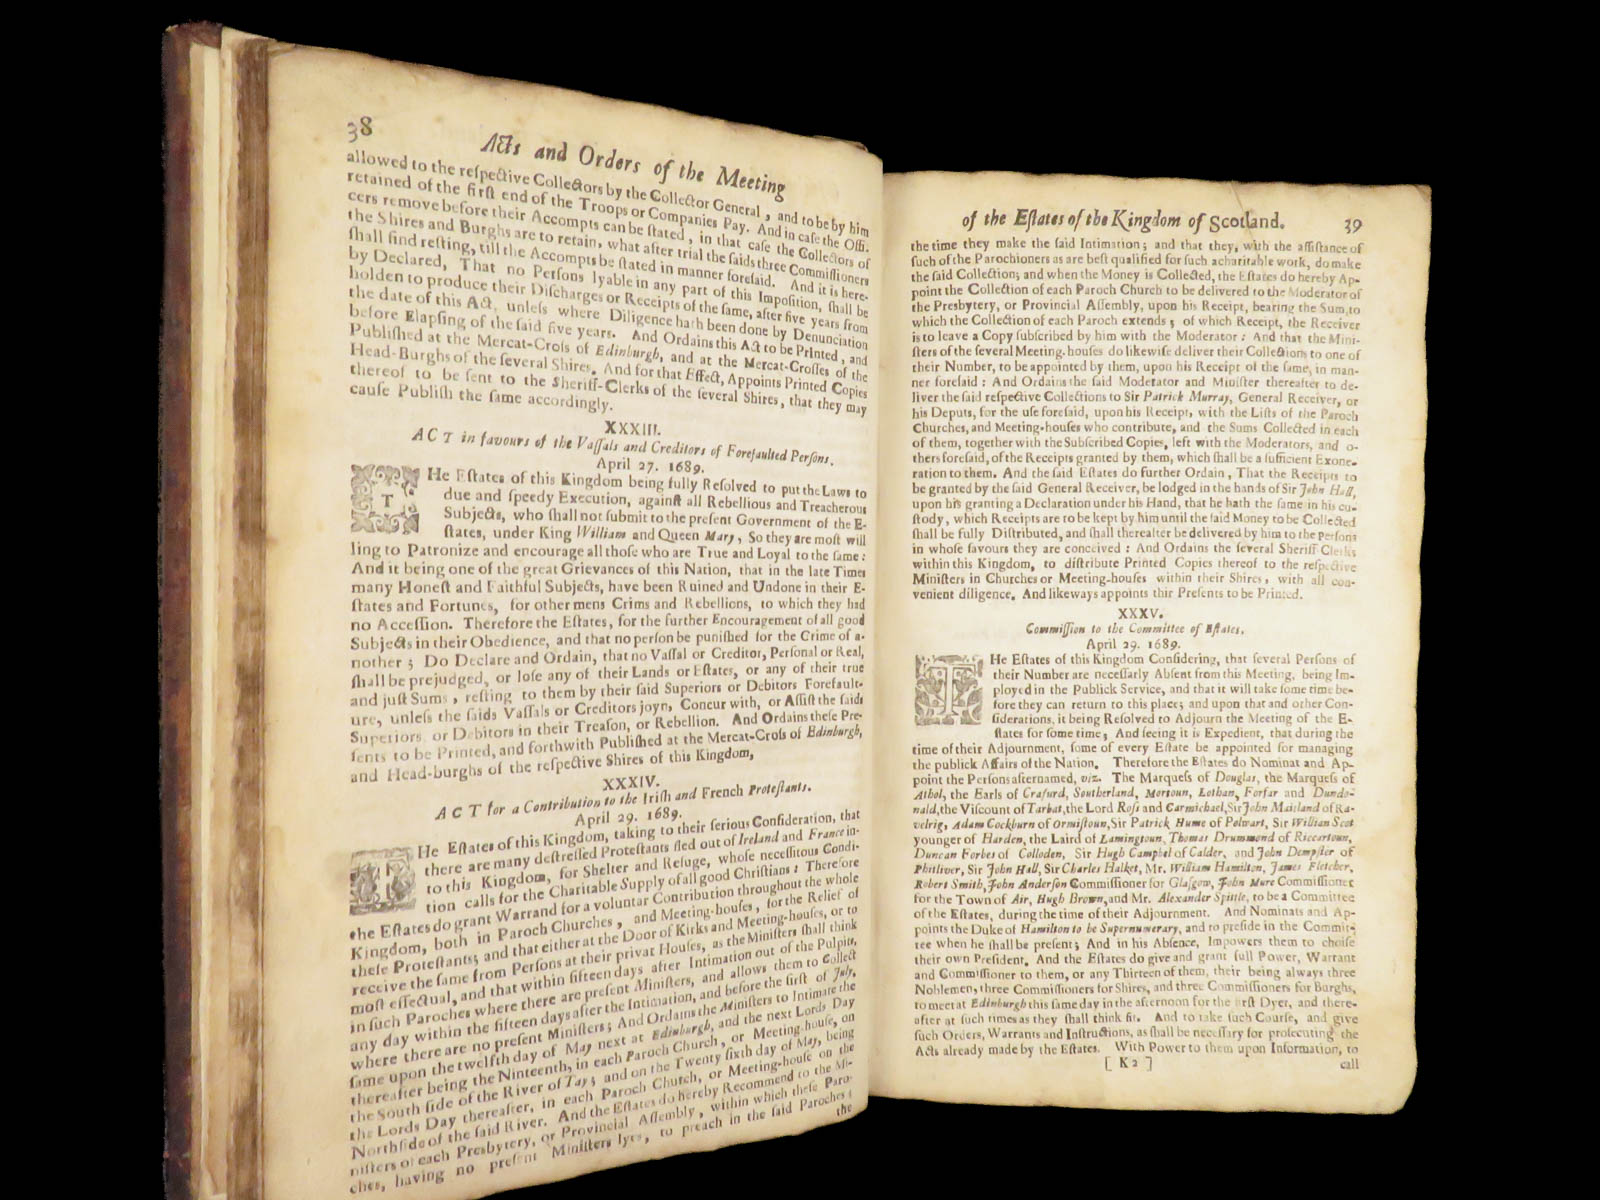 38
Acts and Orders of the Meeting
allowed to the reſpective Collectors by the Collector General, and to be by him
retained of the firſt end of the Troops or Companies Pay. And in caſe the Offi-
cers remove before their Accompts can be ſtated, in that caſe the Collectors of
the Shires and Burghs are to retain, what after trial the ſaids three Commiſſioners
ſhall find reſting, till the Accompts be ſtated in manner foreſaid. And it is here-
by Declared, That no Perſons lyable in any part of this Impoſition, ſhall be
holden to produce their Diſcharges or Receipts of the ſame, after five years from
the date of this Act, unleſs where Diligence hath been done by Denunciation
before Elapſing of the ſaid five years. And Ordains this Act to be Printed, and
Publiſhed at the Mercat-Croſs of Edinburgh, and at the Mercat-Croſſes of the
Head-Burghs of the ſeveral Shires. And for that Effect, Appoints Printed Copies
thereof to be ſent to the Sheriff-Clerks of the ſeveral Shires, that they may
cauſe Publiſh the ſame accordingly.
XXXIII.
ACT in favours of the Vaſſals and Creditors of Forefaulted Perſons.
April 27. 1689.
THe Eſtates of this Kingdom being fully Reſolved to put the Laws to
due and ſpeedy Execution, againſt all Rebellious and Treacherous
Subjects, who ſhall not ſubmit to the preſent Government of the E-
ſtates, under King William and Queen Mary, So they are moſt will
ling to Patronize and encourage all thoſe who are True and Loyal to the ſame:
And it being one of the great Grievances of this Nation, that in the late Times
many Honeſt and Faithful Subjects, have been Ruined and Undone in their E-
ſtates and Fortunes, for other mens Crims and Rebellions, to which they had
no Acceſſion. Therefore the Eſtates, for the further Encouragement of all good
Subjects in their Obedience, and that no perſon be puniſhed for the Crime of a-
nother; Do Declare and Ordain, that no Vaſſal or Creditor, Perſonal or Real,
ſhall be prejudged, or loſe any of their Lands or Eſtates, or any of their true
and juſt Sums, reſting to them by their ſaid Superiors or Debitors Forefault-
ure, unleſs the ſaids Vaſſals or Creditors joyn, Concur with, or Aſſiſt the ſaids
Superiors or Debitors in their Treaſon, or Rebellion. And Ordains theſe Pre-
ſents to be Printed, and forthwith Publiſhed at the Mercat-Croſs of Edinburgh,
and Head-burghs of the reſpective Shires of this Kingdom,
XXXIV.
ACT for a Contribution to the Iriſh and French Proteſtants.
April 29. 1689.
THe Eſtates of this Kingdom, taking to their ſerious Conſideration, that
there are many deſtreſſed Proteſtants fled out of Ireland and France in-
to this Kingdom, for Shelter and Refuge, whoſe neceſſitous Condi-
tion calls for the Charitable Supply of all good Chriſtians: Therefore
the Eſtates do grant Warrand for a voluntar Contribution throughout the whole
Kingdom, both in Paroch Churches, and Meeting-houſes, for the Relief of
theſe Proteſtants; and that either at the Door of Kirks and Meeting-houſes, or to
receive the ſame from Perſons at their privat Houſes, as the Miniſters ſhall think
moſt effectual, and that within fifteen days after Intimation out of the Pulpits,
in ſuch Paroches where there are preſent Miniſters, and allows them to Collect
any day within the fifteen days after the Intimation, and before the firſt of July,
where there are no preſent Miniſters; And Ordains the Miniſters to Intimate the
ſame upon the twelfth day of May next at Edinburgh, and the next Lords Day
thereafter being the Ninteenth, in each Paroch Church, or Meeting-houſe, on
the South ſide of the River of Tay; and on the Twenty ſixth day of May, being
the Lords Day thereafter, in each Paroch Church, or Meeting-houſe on the
North ſide of the ſaid River. And the Eſtates do hereby Recommend to the Mi-
niſters of each Presbytery, or Provincial Aſſembly, within which theſe Paro-
ches, having no preſent Miniſters lyes, to preach in the ſaid Paroches;
the
of the Eſtates of the Kingdom of Scotland. 39
the time they make the ſaid Intimation; and that they, with the aſſiſtance of
ſuch of the Parochioners as are beſt qualified for ſuch a charitable work, do make
the ſaid Collection; and when the Money is Collected, the Eſtates do hereby Ap-
point the Collection of each Paroch Church to be delivered to the Moderator of
the Presbytery, or Provincial Aſſembly, upon his Receipt, bearing the Sum, to
which the Collection of each Paroch extends; of which Receipt, the Receiver
is to leave a Copy ſubſcribed by him with the Moderator: And that the Mini-
ſters of the ſeveral Meeting-houſes do likewiſe deliver their Collections to one of
their Number, to be appointed by them, upon his Receipt of the ſame, in man-
ner foreſaid: And Ordains the ſaid Moderator and Miniſter thereafter to de-
liver the ſaid reſpective Collections to Sir Patrick Murray, General Receiver, or
his Deputs, for the uſe foreſaid, upon his Receipt, with the Liſts of the Paroch
Churches, and Meeting-houſes who contribute, and the Sums Collected in each
of them, together with the Subſcribed Copies, left with the Moderators, and o-
thers foreſaid, of the Receipts granted by them, which ſhall be a ſufficient Exone-
ration to them. And the ſaid Eſtates do further Ordain, That the Receipts to
be granted by the ſaid General Receiver, be lodged in the hands of Sir John Hall,
upon his granting a Declaration under his Hand, that he hath the ſame in his cu-
ſtody, which Receipts are to be kept by him until the ſaid Money to be Collected
ſhall be fully Diſtributed, and ſhall thereafter be delivered by him to the Perſons
in whoſe favours they are conceived: And Ordains the ſeveral Sheriff Clerks
within this Kingdom, to diſtribute Printed Copies thereof to the reſpective
Miniſters in Churches or Meeting-houſes within their Shires, with all con-
venient diligence. And likeways appoints thir Preſents to be Printed.
XXXV.
Commiſſion to the Committee of Eſtates.
April 29. 1689.
THe Eſtates of this Kingdom Conſidering, that ſeveral Perſons of
their Number are neceſſarly Abſent from this Meeting, being Im-
ployed in the Publick Service, and that it will take ſome time be-
fore they can return to this place; and upon that and other Con-
ſiderations, it being Reſolved to Adjourn the Meeting of the E-
ſtates for ſome time; And ſeeing it is Expedient, that during the
time of their Adjournment, ſome of every Eſtate be appointed for managing
the publick Affairs of the Nation. Therefore the Eſtates do Nominat and Ap-
point the Perſons afternamed, viz. The Marqueſs of Douglas, the Marqueſs of
Athol, the Earls of Crafurd, Southerland, Mortoun, Lothan, Forfar and Dundo-
nald, the Viſcount of Tarbat, the Lord Roſs and Carmichael, Sir John Maitland of Ra-
velrig, Adam Cockburn of Ormiſtoun, Sir Patrick Hume of Polwart, Sir William Scot
younger of Harden, the Laird of Lamingtoun, Thomas Drummond of Riccartoun,
Duncan Forbes of Colloden, Sir Hugh Campbel of Calder, and John Dempſter of
Phitliver, Sir John Hall, Sir Charles Halket, Mr. William Hamilton, James Fletcher,
Robert Smith, John Anderſon Commiſſioner for Glaſgow, John Mure Commiſſioner
for the Town of Air, Hugh Brown, and Mr. Alexander Spittle, to be a Committee
of the Eſtates, during the time of their Adjournment. And Nominats and Ap-
points the Duke of Hamilton to be Supernumerary, and to preſide in the Commit-
tee when he ſhall be preſent; And in his Abſence, Impowers them to choiſe
their own Preſident. And the Eſtates do give and grant full Power, Warrant
and Commiſſioner to them, or any Thirteen of them, their being always three
Noblemen, three Commiſſioners for Shires, and three Commiſſioners for Burghs,
to meet at Edinburgh this ſame day in the afternoon for the firſt Dyet, and there-
after at ſuch times as they ſhall think fit. And to take ſuch Courſe, and give
ſuch Orders, Warrants and Inſtructions, as ſhall be neceſſary for proſecuting the
Acts already made by the Eſtates. With Power to them upon Information, to
[ K 2 ] call